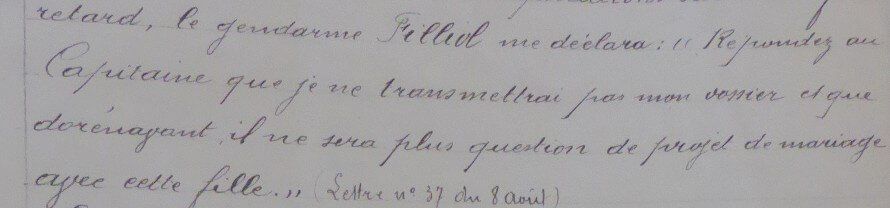 retard, le gendarme Filliol me déclara : " Répondez au
Capitaine que je ne transmettrai pas mon dossier et que
dorénavant, il ne sera plus question de projet de mariage
avec cette fille. " (Lettre n° 37 du 8 août)